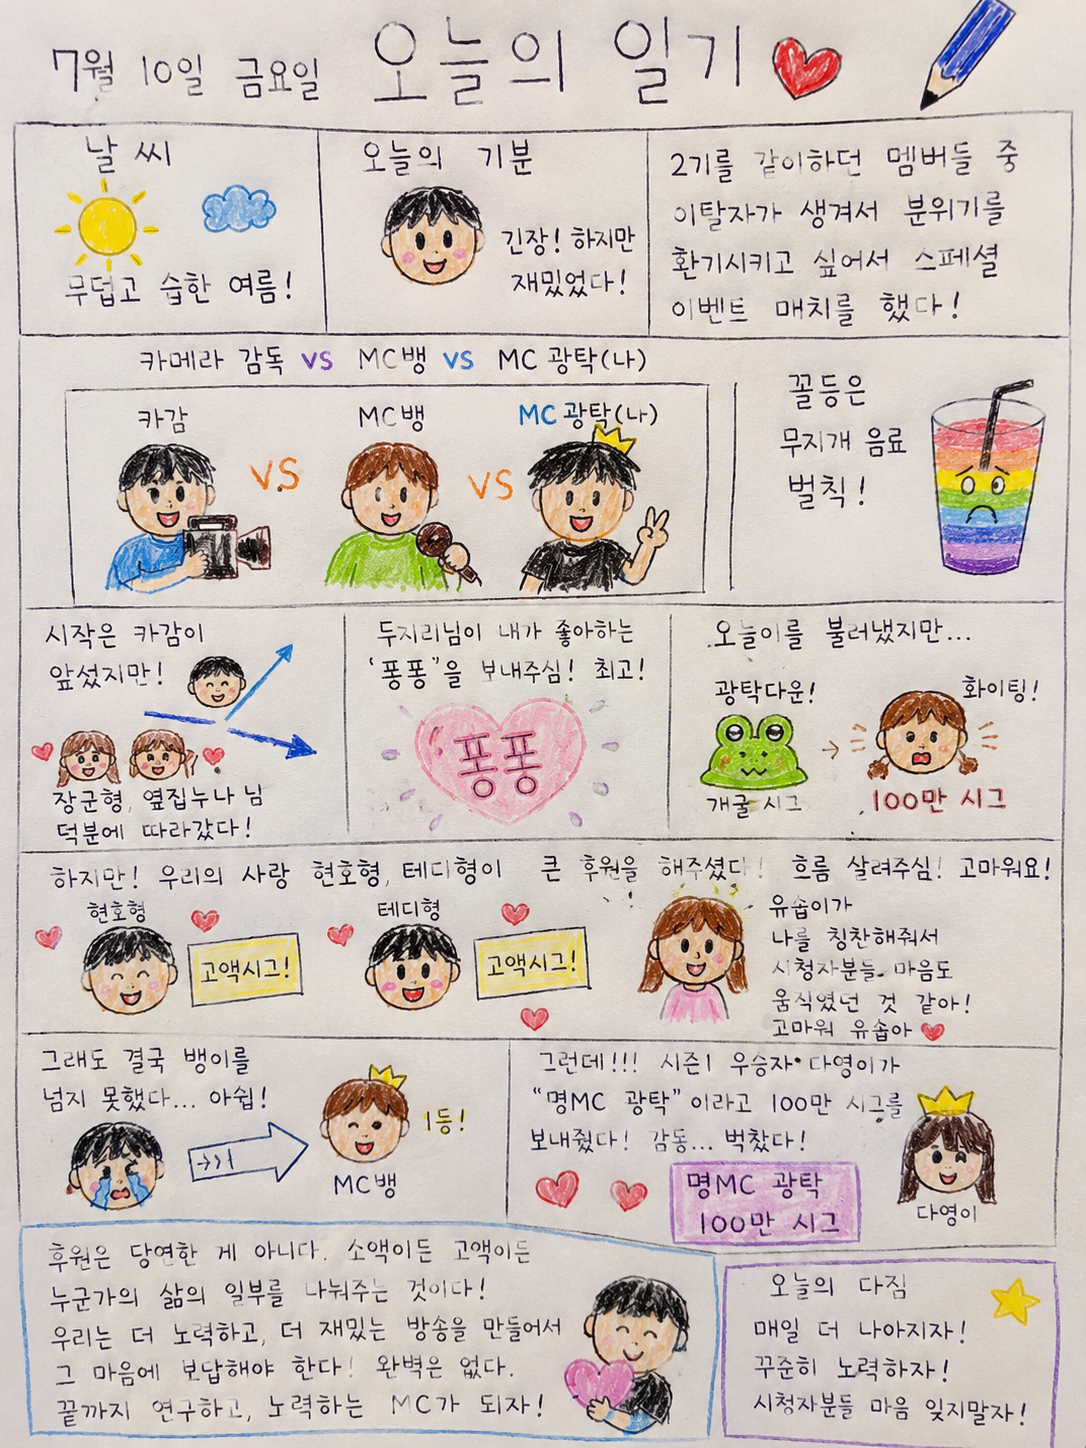 7월 10일 금요일 오늘의 일기
날씨
무덥고 습한 여름!
오늘의 기분
긴장! 하지만
재밌었다!
2기를 같이하던 멤버들 중
이탈자가 생겨서 분위기를
환기시키고 싶어서 스페셜
이벤트 매치를 했다!
카메라 감독 VS MC뱅 VS MC 광탁(나)
카감
VS
MC뱅
VS
MC 광탁(나)
꼴등은
무지개 음료
벌칙!
시작은 카감이
앞섰지만!
장군형, 옆집누나 님
덕분에 따라갔다!
두지리님이 내가 좋아하는
‘퐁퐁”을 보내주심! 최고!
퐁퐁
오늘이를 불러냈지만...
광탁다운!
개굴 시그
화이팅!
100만 시그
하지만! 우리의 사랑 현호형, 테디형이 큰 후원을 해주셨다! 흐름 살려주심! 고마워요!
현호형
고액시그!
테디형
고액시그!
유솝이가
나를 칭찬해줘서
시청자분들 마음도
움직였던 것 같아!
고마워 유솝아
그래도 결국 뱅이를
넘지 못했다... 아쉽!
1등!
MC뱅
그런데!!! 시즌1 우승자 다영이가
“명MC 광탁” 이라고 100만 시그를
보내줬다! 감동... 벅찼다!
명MC 광탁
100만 시그
다영이
후원은 당연한 게 아니다. 소액이든 고액이든
누군가의 삶의 일부를 나눠주는 것이다!
우리는 더 노력하고, 더 재밌는 방송을 만들어서
그 마음에 보답해야 한다! 완벽은 없다.
끝까지 연구하고, 노력하는 MC가 되자!
오늘의 다짐
매일 더 나아지자!
꾸준히 노력하자!
시청자분들 마음 잊지말자!